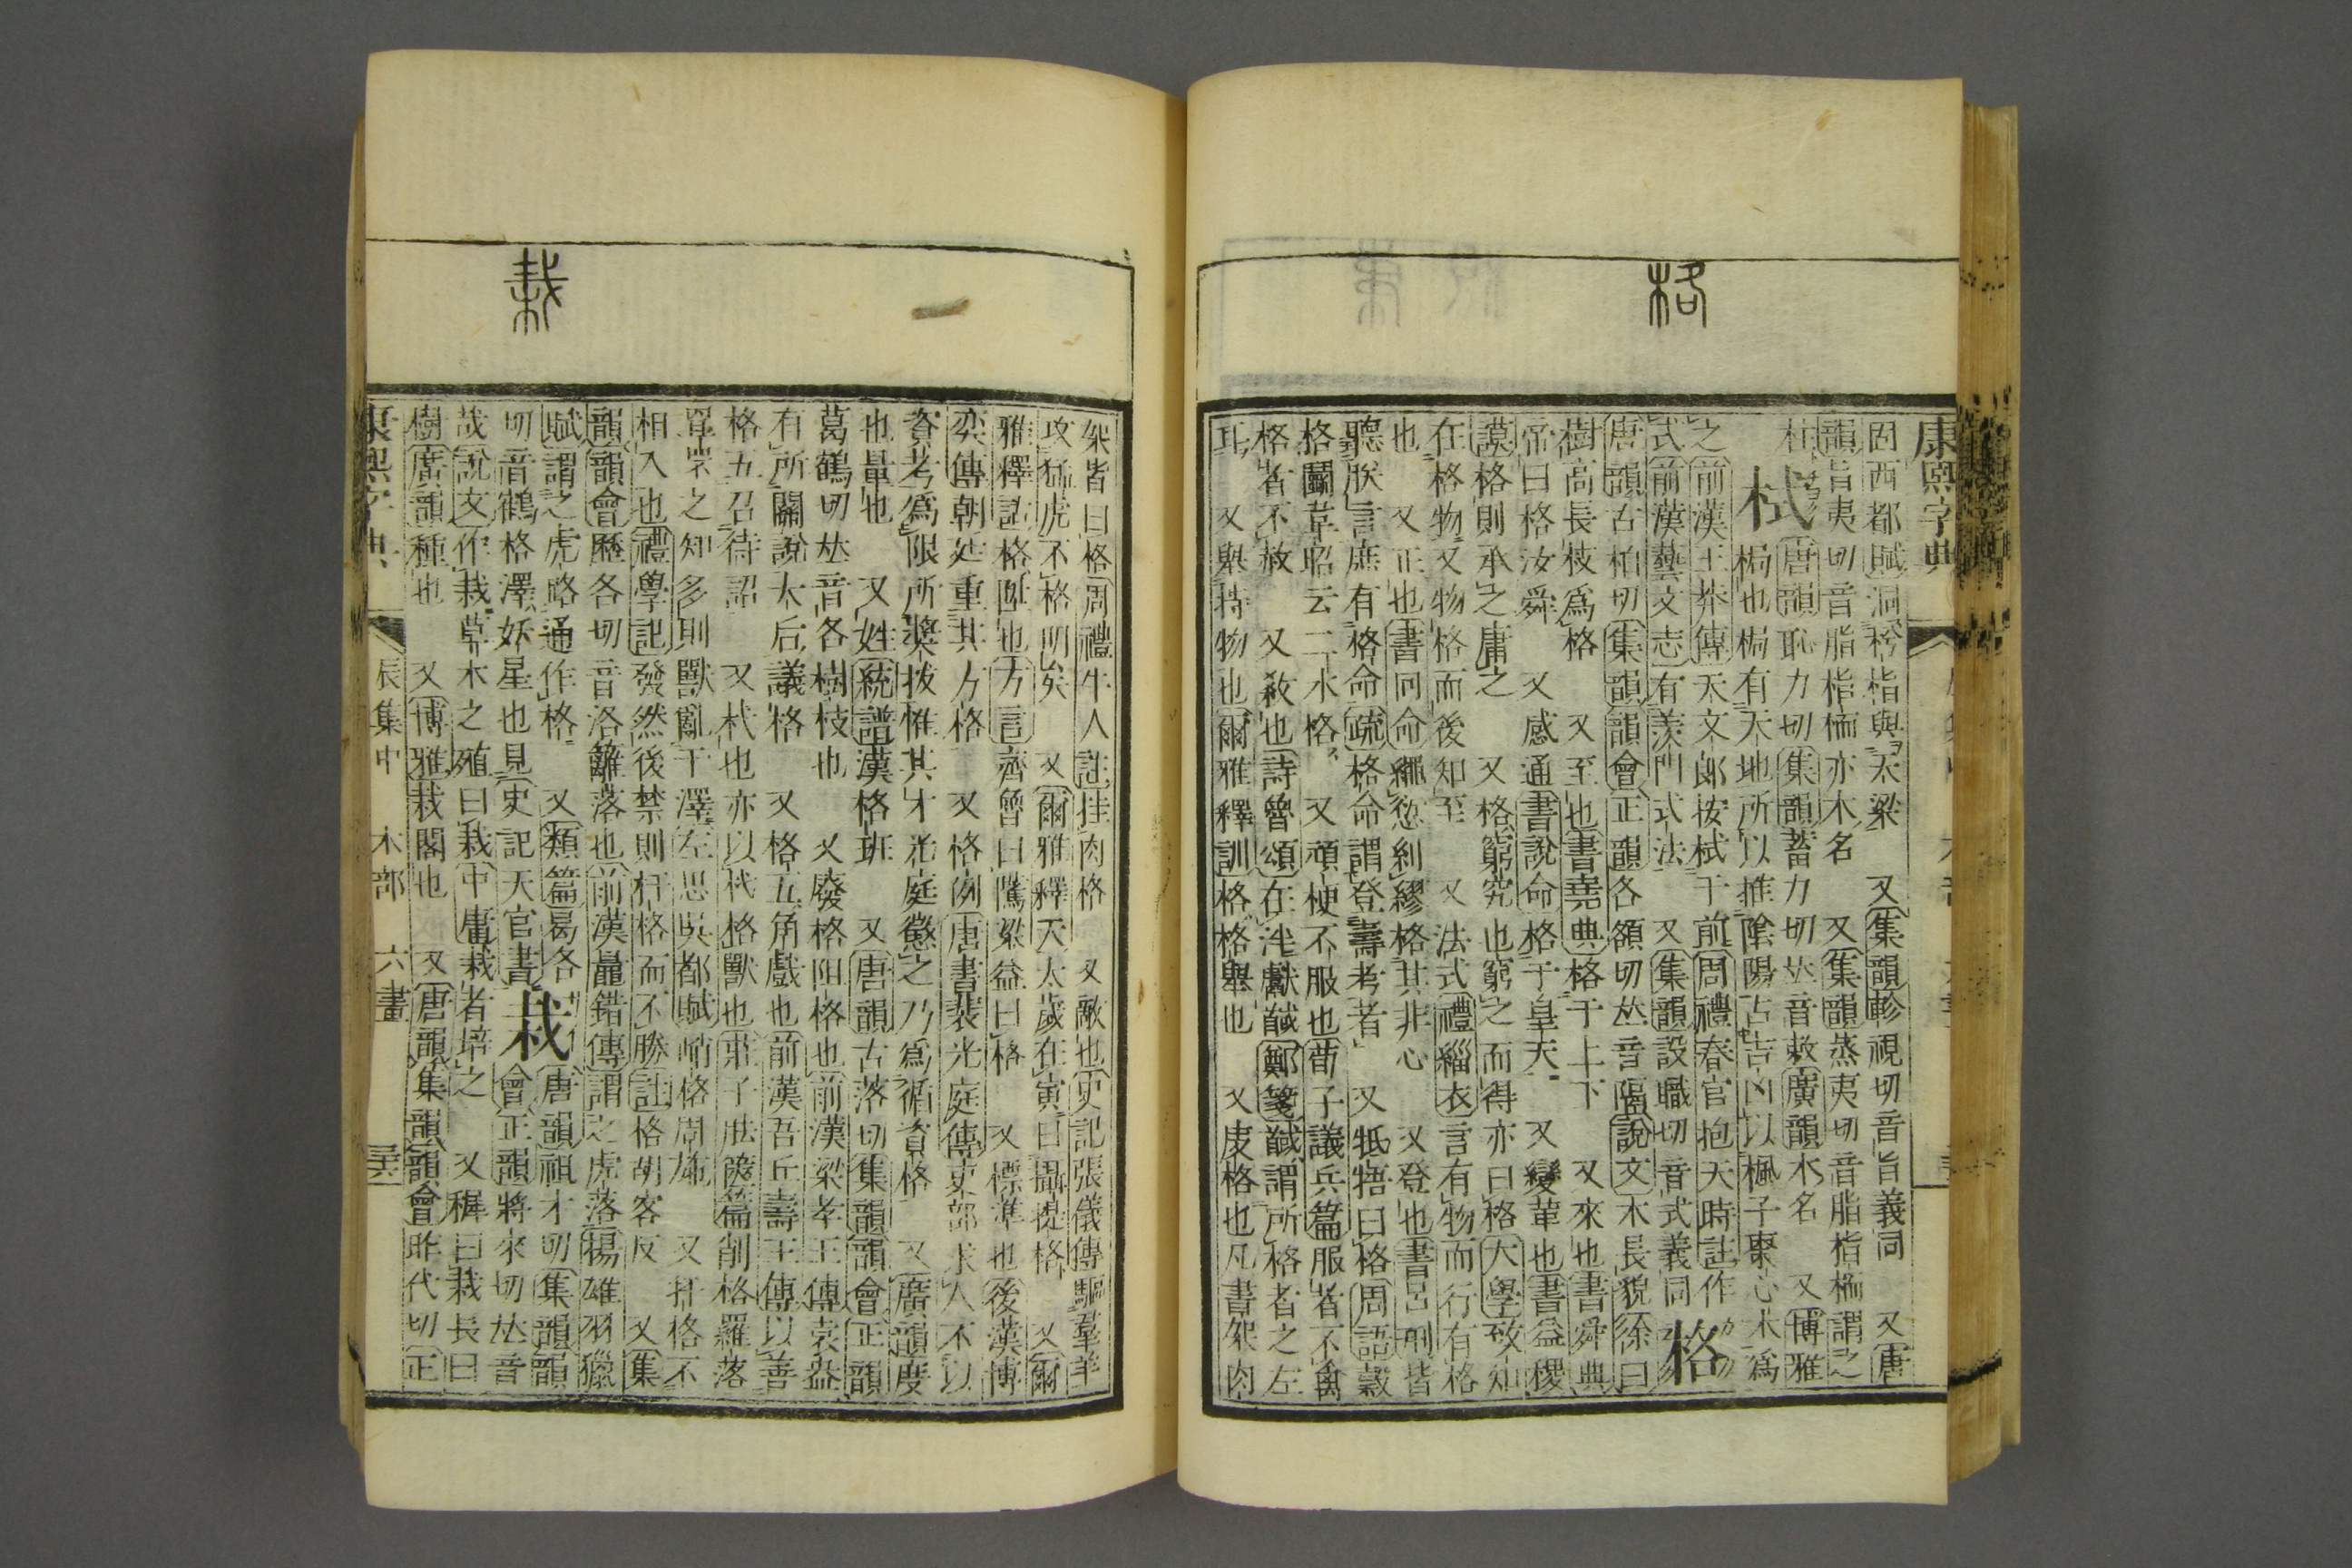 格
康熙字典
固西都賦洞枍栺與天梁 又集韻軫視切音旨義同 又唐
韻旨夷切音脂栺栭亦木名 又集韻蒸夷切音脂栺栭謂之
柱 栻 唐韻恥力切集韻蓄力切𠀤音敕廣韻木名 又博雅
梮也梮有天地所以推陰陽占吉凶以楓子棗心木爲
之前漢王莽傳天文郎按栻于前周禮春官抱天時註作
式前漢藝文志有羨門式法 又集韻設職切音式義同 格
唐韻古柏切集韻韻會正韻各額切𠀤音隔說文木長貌徐曰
樹高長枝爲格 又至也書堯典格于上下 又來也書舜典
帝曰格汝舜 又感通書說命格于皇天 又變革也書益稷
謨格則承之庸之 又格窮究也窮之而得亦曰格大學致知
在格物又物格而後知至 又法式禮緇衣言有物而行有格
也 又正也書冏命繩愆糾繆格其非心 又登也書呂刑皆
聽朕言庶有格命疏格命謂登壽考者 又牴牾曰格周語穀
格鬭韋昭云二水格 又頑梗不服也荀子議兵篇服者不禽
格者不赦 又殺也詩魯頌在泮獻馘鄭箋馘謂所格者之左
耳 又舉持物也爾雅釋訓格格舉也 又庋格也凡書架肉
栽
架皆曰格周禮牛人註挂肉格 又敵也史記張儀傳驅羣羊
攻猛虎不格明矣 又爾雅釋天太歲在寅曰攝提格 又爾
雅釋詁格陞也方言齊魯曰隲梁益曰格 又標準也後漢博
奕傳朝廷重其方格 又格例唐書裴光庭傳吏部求人不以
資考爲限所奬拔惟其才光庭懲之乃爲循資格 又廣韻度
也量也 又姓統譜漢格班 又唐韻古落切集韻韻會正韻
葛鶴切𠀤音各樹枝也 又廢格阻格也前漢梁孝王傳袁盎
有所關說太后議格 又格五角戲也前漢吾丘壽王傳以善
格五召待詔 又杙也亦以杙格獸也莊子胠篋篇削格羅落
罝罘之知多則獸亂于澤左思吳都賦峭格周施 又扞格不
相入也禮學記發然後禁則扞格而不勝註格胡客反 又集
韻韻會歷各切音洛籬落也前漢鼂錯傳謂之虎落揚雄羽獵
賦謂之虎路通作格 又類篇曷各 栽 唐韻祖才切集韻韻
切音鶴格澤妖星也見史記天官書 會正韻將來切𠀤音
哉說文作栽草木之殖曰栽中庸栽者培之 又穉曰栽長曰
樹廣韻種也 又博雅栽閣也 又唐韻集韻韻會昨代切正
康熙字典 辰集中 木部 六畫